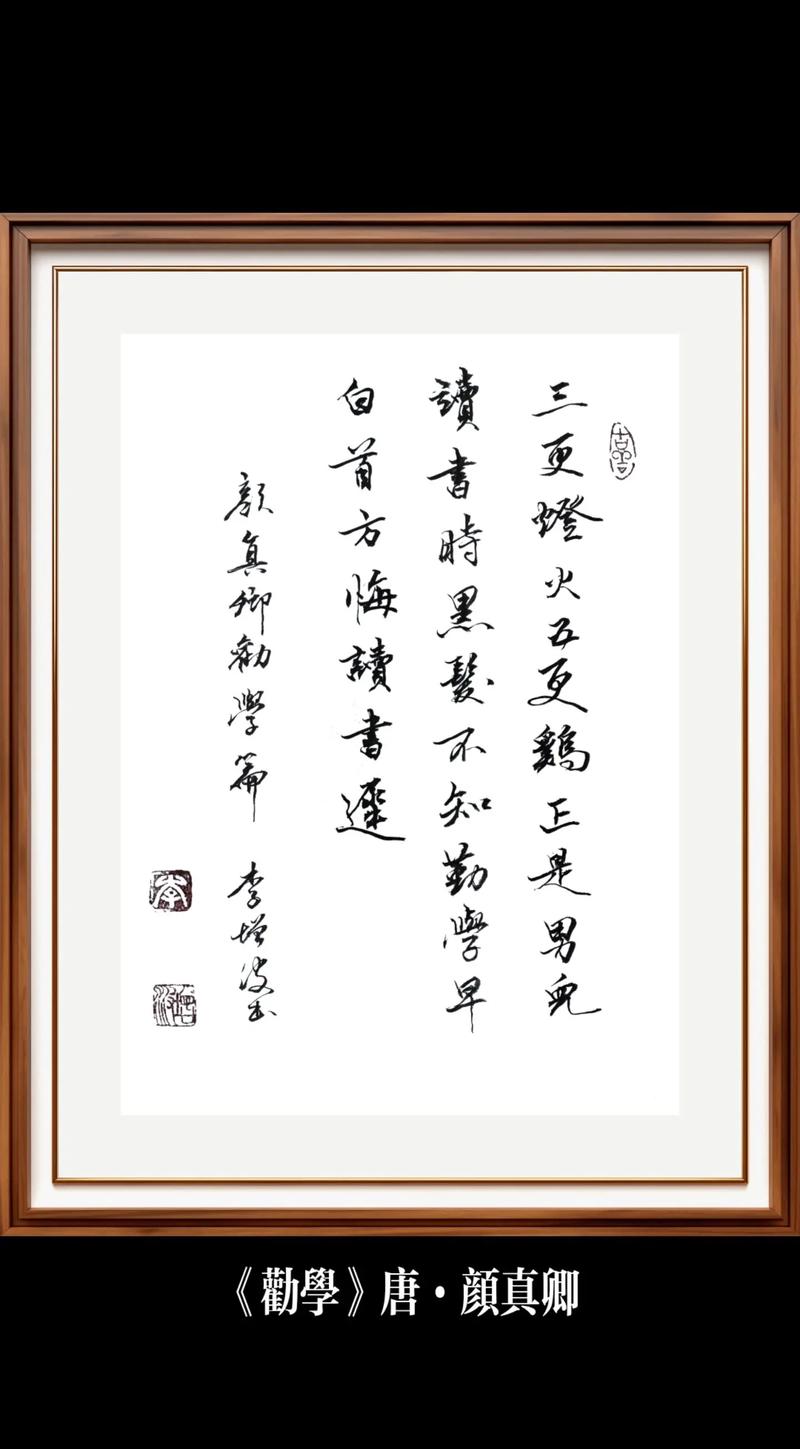 三更燈火五更鷄正是男兒
讀書時黑髮不知勤學早
白首方悔讀書遲
顏真卿勸學篇 李增波书
《勸學》唐·顔真卿